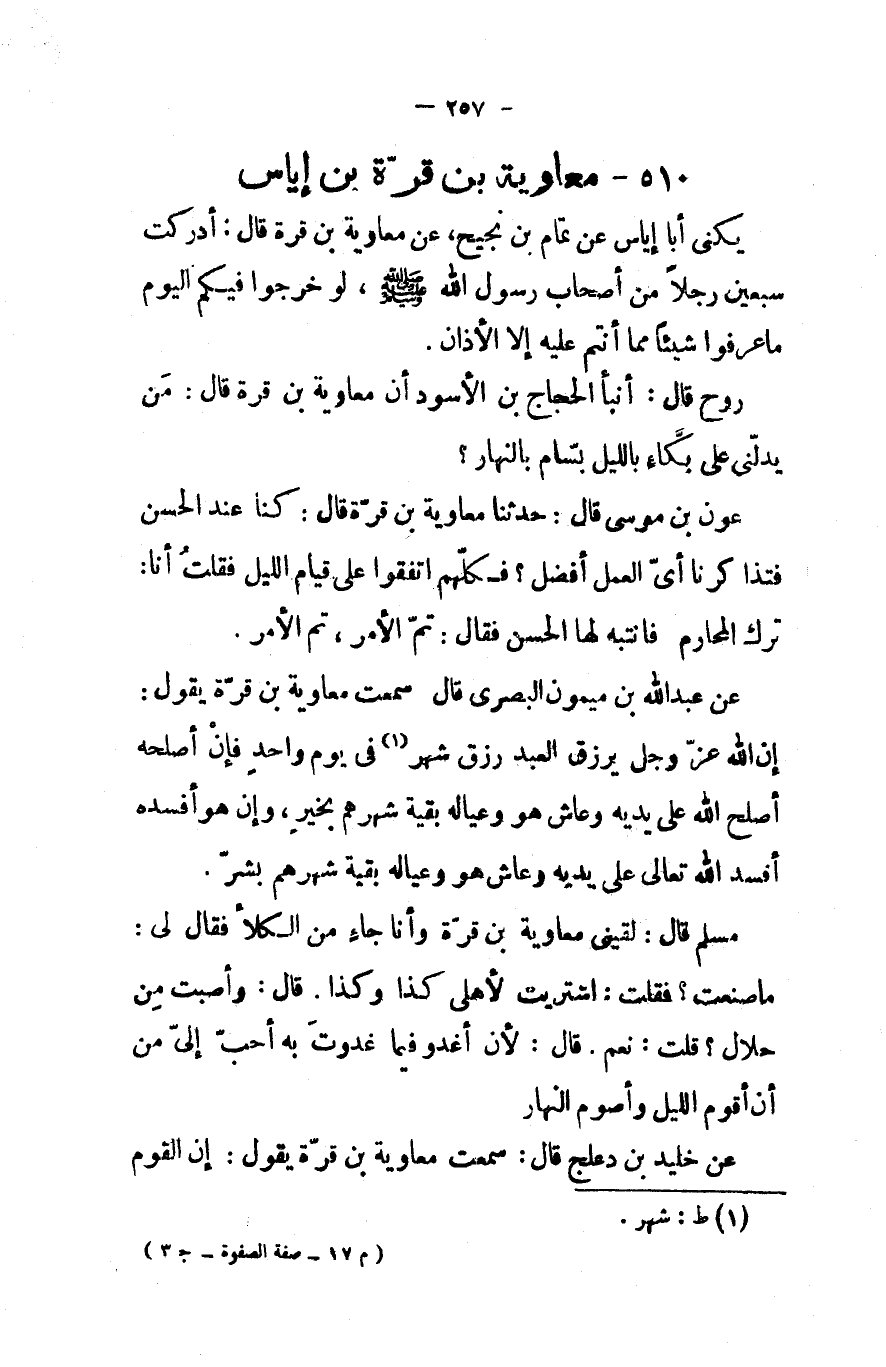 - ٢٥٧ -
٥١٠ - معاوية بن قرّة بن إياس
يكنى أبا إياس عن تمام بن نجيح، عن معاوية بن قرة قال : أدركت
سبعين رجلاً من أصحاب رسول الله ﷺ ، لو خرجوا فيكم اليوم
ماعرفوا شيئاً مما أنتم عليه إلا الأذان .
روح قال : أنبأ الحجاج بن الأسود أن معاوية بن قرة قال : مَن
يدلّنى على بكَّاءٍ بالليل بسّام بالنهار ؟
عون بن موسى قال : حدثنا معاوية بن قرّة قال : كنا عند الحسن
فتذاكرنا أىّ العمل أفضل ؟ فكلّهم اتفقوا على قيام الليل فقلتُ أنا :
ترك المحارم فانتبه لها الحسن فقال : تمّ الأمر ، تم الأمر .
عن عبدالله بن ميمون البصرى قال سمعت معاوية بن قرّة يقول :
إن الله عزّ وجل يرزق العبد رزق شهر (١) فى يوم واحدٍ فإنْ أصلحه
أصلح الله على يديه وعاش هو وعياله بقية شهرهم بخيرٍ ، وإن هو أفسده
أفسد الله تعالى على يديه وعاش هو وعياله بقية شهرهم بشرّ .
مسلم قال : لقينى معاوية بن قرّة وأنا جاءٍ من الكلأ فقال لى :
ماصنعت ؟ فقلت : اشتريت لأهلى كذا وكذا . قال : وأصبت مِن
حلال ؟ قلت : نعم . قال : لأن أغدو فيما غدوتَ به أحبّ إلىّ من
أن أقوم الليل وأصوم النهار
عن خليد بن دعلج قال : سمعت معاوية بن قرّة يقول : إن القوم
(١) ط : شهر .
( م ١٧ - صفة الصفوة - ج ٣ )